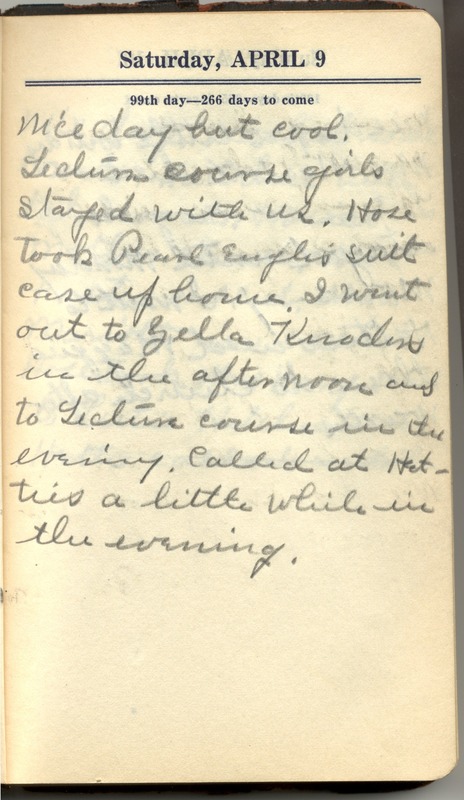 Saturday, APRIL 9
99th day—266 days to come
Nice day but cool.
Lecture course girls
stayed with us. Hose
took Pearl Englis suit
case up home. I went
out to Zella Knodes
in the afternoon and
to Lecture course in the
evening. Called at Het-
ties a little while in
the evening.